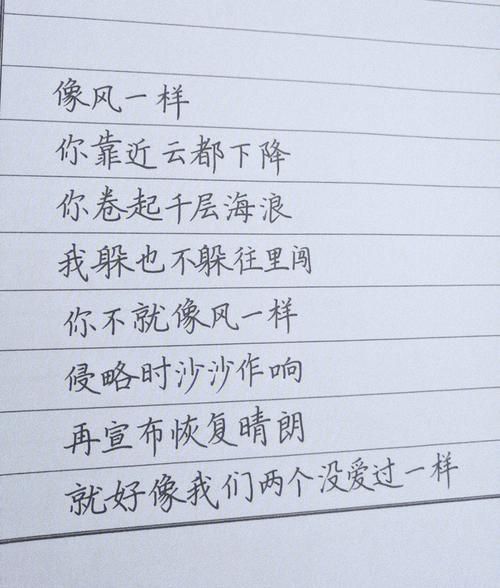 像风一样
你靠近云都下降
你卷起千层海浪
我躲也不躲往里闯
你不就像风一样
侵略时沙沙作响
再宣布恢复晴朗
就好像我们两个没爱过一样